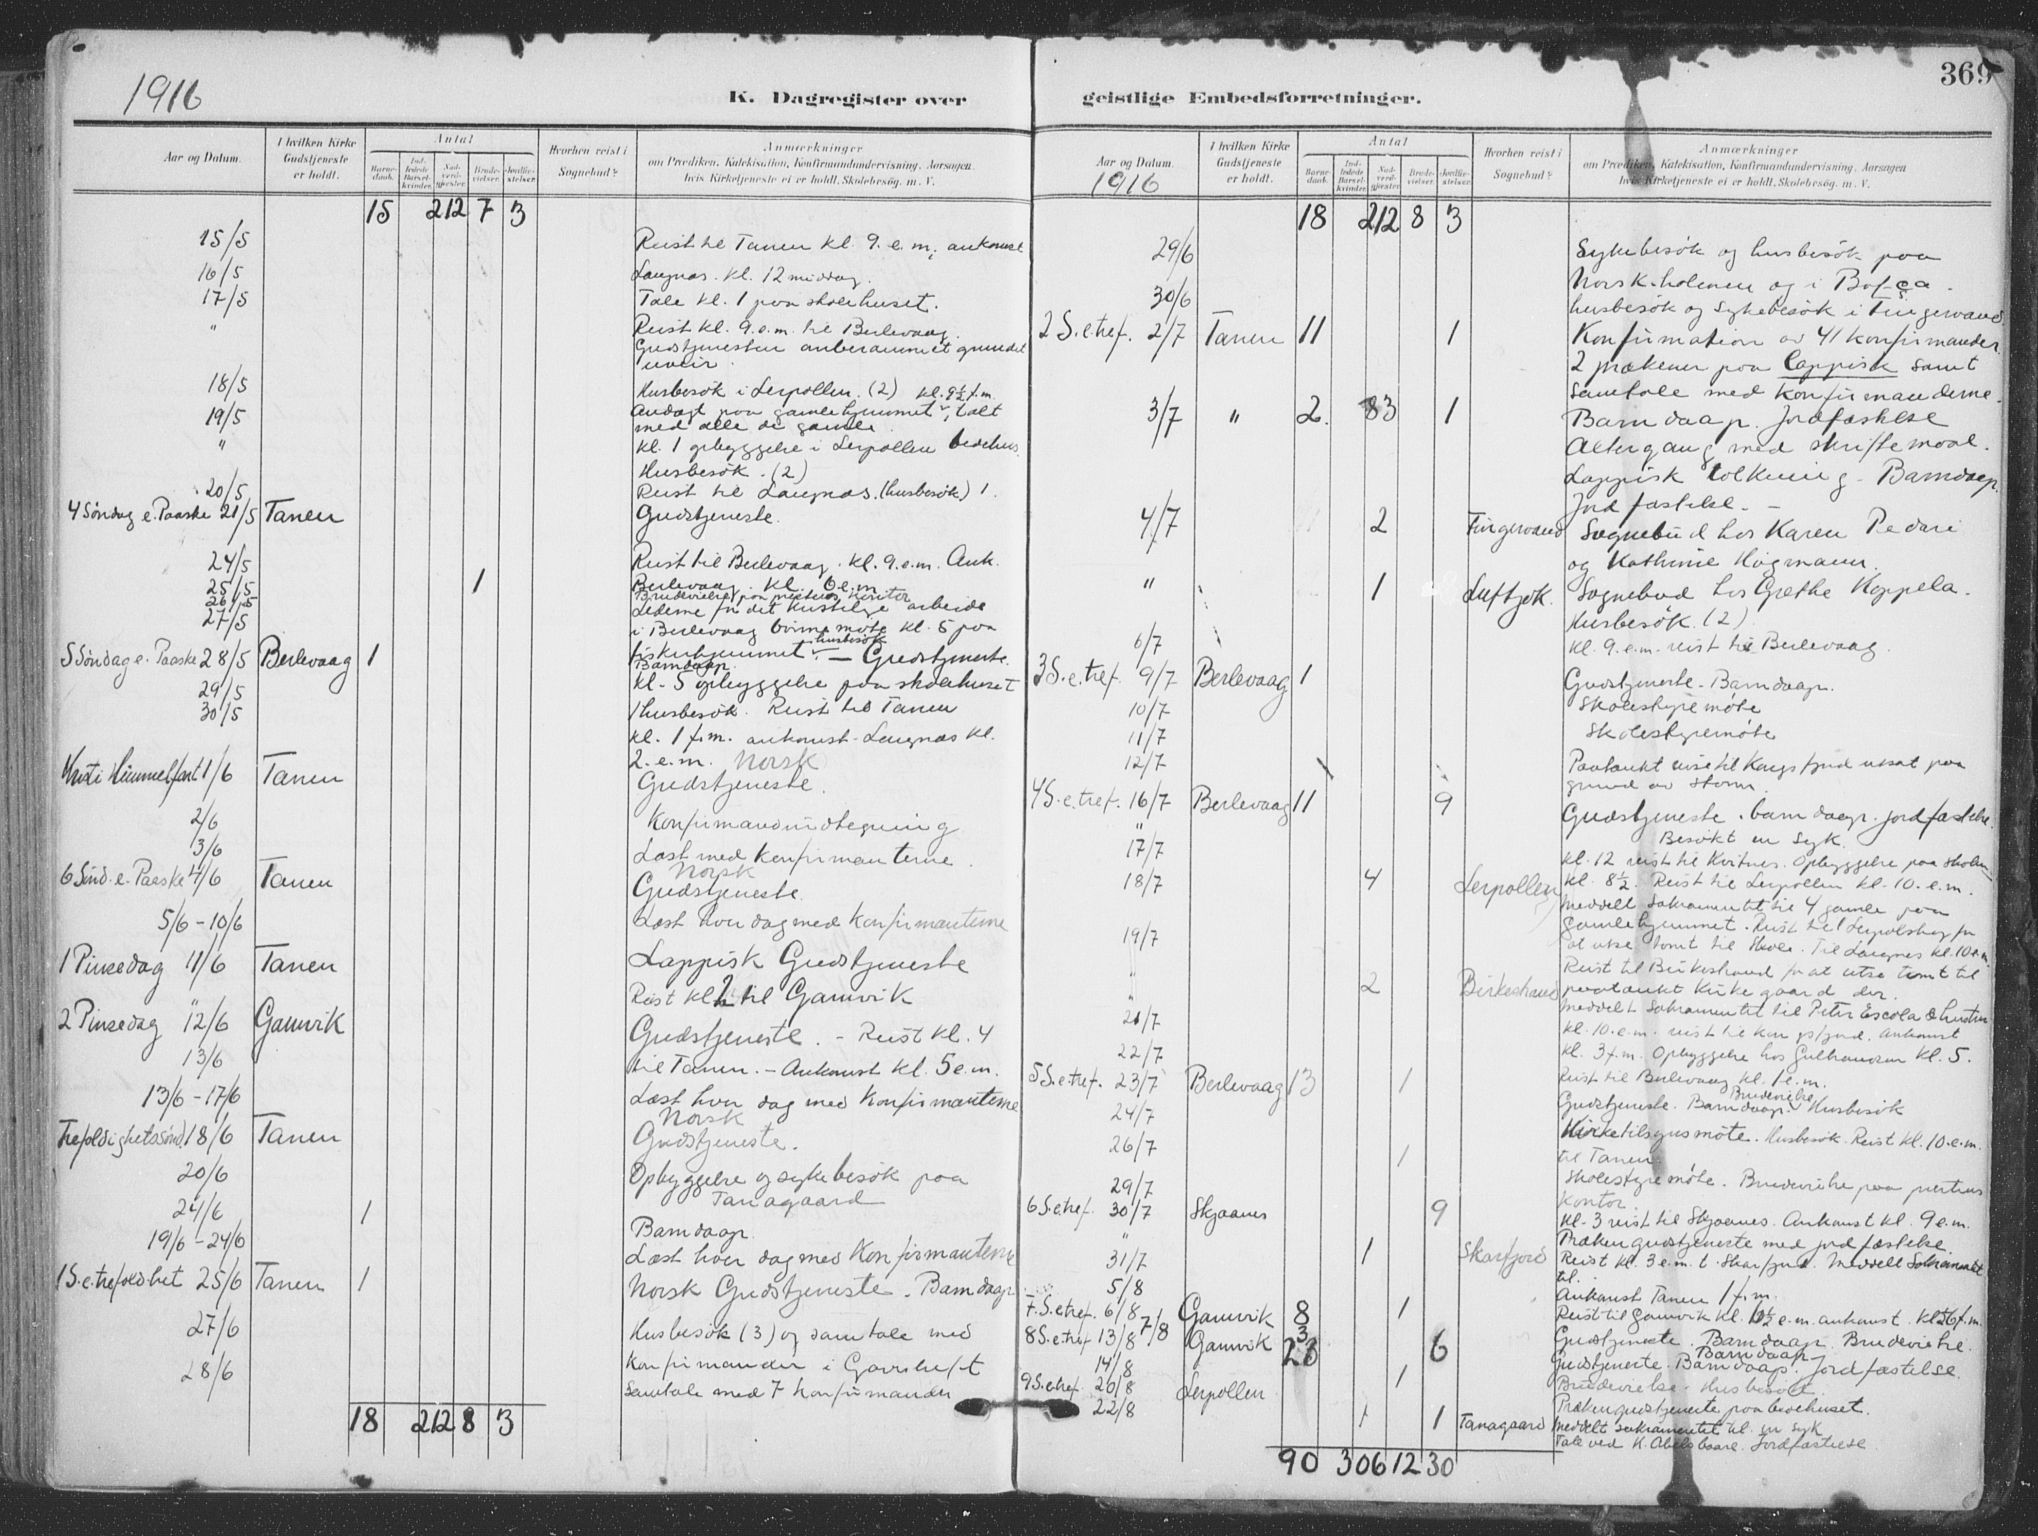 1916
K. Dagregister over
Aar og Datum.
I hvilken Kirke Gudstjeneste er holdt.
Antal
Barne-daab.
Ind-ledede Barsel-kvinder.
Nad-verd-gjester.
Brude-vielser.
Jordfæ-stelser.
Hvorhen reist i Sognebud?
Anmærkninger
om Prædiken, Katekisation, Konfirmandundervisning, Aarsagen
hvis Kirketjeneste ei er holdt, Skolebesøg. m. V.
15 212 7 3
15/5 Reist til Tanen kl. 9. e. m., ankomst
16/5 Langnæs. kl. 12 middag.
17/5 Tale kl. 1 paa skolehuset.
" Reist kl. 9. e. m. til Berlevaag.
Gudstjenesten anberammet grundet
uveir.
18/5 Husbesök i Lerpollen. (2) kl. 9½ f. m.
19/5 Andagt paa gamlehjemmet, talt
med alle de gamle.
" kl. 1 opbyggelse i Lerpollen bedehus.
Husbesök. (2)
20/5 Reist til Langnæs. (husbesök) 1.
4 Söndag e. Paaske 21/5 Tanen Gudstjeneste.
24/5 Reist til Berlevaag. kl. 9. e. m. Ank.
25/5 1 Berlevaag. kl. 6 e. m.
26/5 Brudevielse paa prestens kontor
27/5 Lederne for det kristelige arbeide
i Berlevaag kl. 5 paa
husbesök
5 Söndag e. Paaske 28/5 Berlevaag 1 fiskerhjemmet. — Gudstjeneste.
Barndaap.
29/5 kl. 5 opbyggelse paa skolehuset
30/5 1 husbesök. Reist til Tanen
kl. 1 f. m. ankomst Langnæs kl.
2. e. m. Norsk
Kristi Himmelfart 1/6 Tanen Gudstjeneste.
2/6 Konfirmandindtegning
3/6 Læst med konfirmanterne.
Norsk
6 Sönd. e. Paaske 4/6 Tanen Gudstjeneste.
5/6 - 10/6 Læst hver dag med konfirmanterne
1 Pinsedag 11/6 Tanen Lappisk Gudstjeneste
" Reist kl. 2 til Gamvik
2 Pinsedag 12/6 Gamvik Gudstjeneste. - Reist kl. 4
13/6 til Tanen. - Ankomst kl. 5 e. m.
13/6 - 17/6 Læst hver dag med Konfirmanterne
Norsk
Trefoldighetssönd. 18/6 Tanen Gudstjeneste.
20/6 Opbyggelse og sykebesök paa
Tanagaard
24/6 1 Barndaap.
19/6 - 24/6 Læst hver dag med Konfirmanterne
1 S. e. trefoldhet 25/6 Tanen 1 Norsk Gudstjeneste. Barndaap
27/6 Husbesök (3) og samtale med
28/6 konfirmander i
samtale med 7 konfirmander
18 212 8 3
369
geistlige Embedsforretninger.
Aar og Datum.
1916
I hvilken Kirke Gudstjeneste er holdt.
Antal
Barne-daab.
Ind-ledede Barsel-kvinder.
Nad-verd-gjester.
Brude-vielser.
Jordfæ-stelser.
Hvorhen reist i Sognebud?
Anmærkninger
om Prædiken, Katekisation, Konfirmandundervisning, Aarsagen
hvis Kirketjeneste ei er holdt, Skolebesøg. m. V.
18 212 8 3
29/6 Sykebesök og husbesök paa
Norskholmen og i
30/6 husbesök og sykebesök i Fingervand.
2 S. e. tref. 2/7 Tanen 11 1 Konfirmation av 41 konfirmander.
2 prækener paa lappisk samt
samtale med konfirmanderne.
3/7 " 2. 83 1 Barndaap. Jordfæstelse
Altergang med skriftemaal.
Lappisk tolkning - Barndaap.
Jordfæstelse. -
4/7 2 Fingervand Sognebud hos Karen Pedari
og Kathrine Högmann.
" 1 Luftjok. Sognebud hos Grethe Koppela.
Husbesök (2)
6/7 kl. 9. e. m. reist til Berlevaag.
3 S. e. tref. 9/7 Berlevaag 1 Gudstjeneste. Barndaap.
10/7 Skolestyremöte
11/7 Skolestyremöte
12/7 Paatænkt reise til Kongsfjord utsat paa
grund av storm.
4 S. e. tref. 16/7 Berlevaag 11 9 Gudstjeneste. barndaap. jordfæstelse.
" Besökt en syk.
17/7 kl. 12 reist til Kvitnes. Opbyggelse paa skolen
18/7 4 Lerpollen kl. 8½. Reist til Lerpollen kl. 10. e. m.
meddelt sakramentet til 4 gamle paa
19/7 gamlehjemmet. Reist til for
at utse tomt til skole. Til Langnes kl. 10 e. m.
" Reist til Birkestrand for at utse tomt til
2 Birkestrand paatænkt kirkegaard der.
" meddelt sakramentet til Peter Escola & hustru
21/7 kl. 10. e. m. reist til Kongsfjord. Ankomst
22/7 kl. 3 f. m. Opbyggelse hos Gulbransen kl. 5.
Reist til Berlevaag kl. 1 e. m.
5 S. e. tref. 23/7 Berlevaag 13 1 Gudstjeneste. Barndaap. Brudevielse Husbesök
24/7 Kirketilsynsmöte. Husbesök. Reist kl. 10. e. m.
til Tanen.
26/7 1 Skolestyremöte. Brudevielse paa prestens
kontor.
29/7 kl. 3 reist til Skjaanes. Ankomst kl. 9 e. m.
6 S. e. tref. 30/7 Skjaanes 9 Prækengudstjeneste med jordfæstelse
" 1 Skarfjord Reist kl. 3 e. m. t. Skarfjord. Meddelt Sakramentet
til.
31/7 Ankomst Tanen 1 f. m.
5/8 Reist til Gamvik kl. e. m. ankomst. kl. f. m.
7. S. e. tref. 6/8 Gamvik 8 1 Gudstjeneste. Barndaap. Brudevielse.
7/8 3 Barndaap
8 S. e. tref. 13/8 Gamvik 23 6 Gudstjeneste. Barndaap. Jordfæstelse.
14/8 1 Brudevielse. Husbesök.
9 S. e. tref. 20/8 Lerpollen Prækengudstjeneste paa bedehuset.
22/8 1 1 Tanagaard Meddelt sakramentet til en syk
Tale ved K. Abels baare. Jordfæstelse.
90 306 12 30